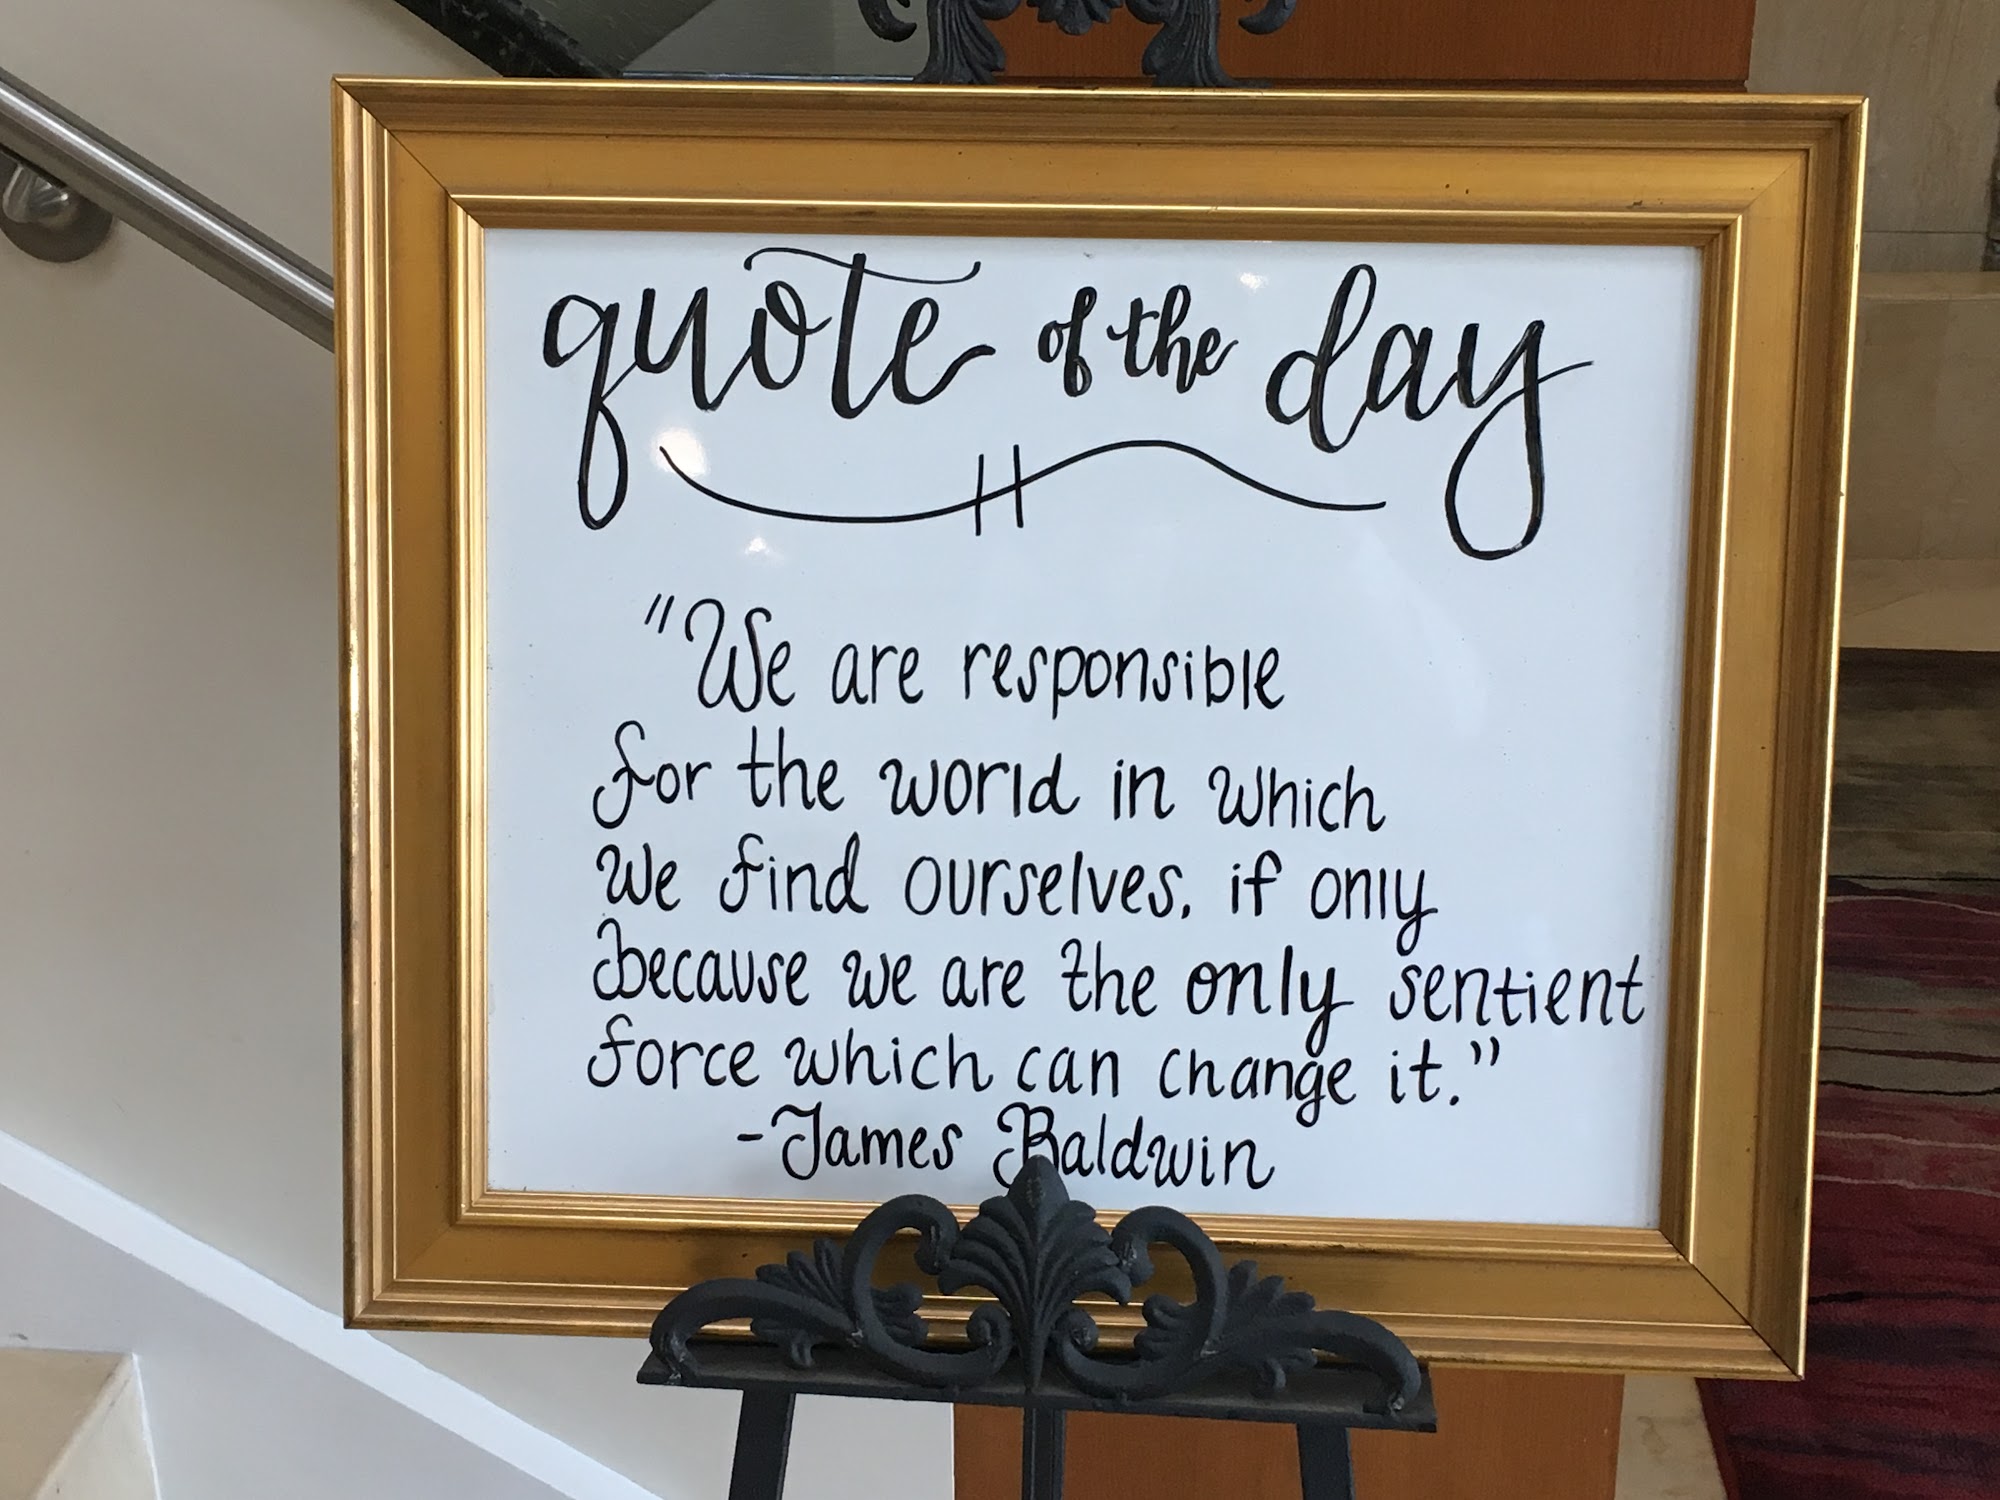 quote of the day
"We are responsible
for the world in which
we find ourselves, if only
because we are the only sentient
force which can change it."
-James Baldwin